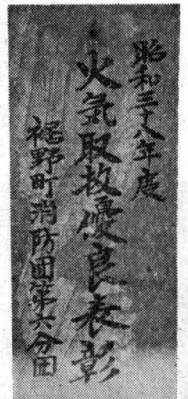 昭和三十八年度
火氣取扱優良表彰
裾野町消防団第六分団